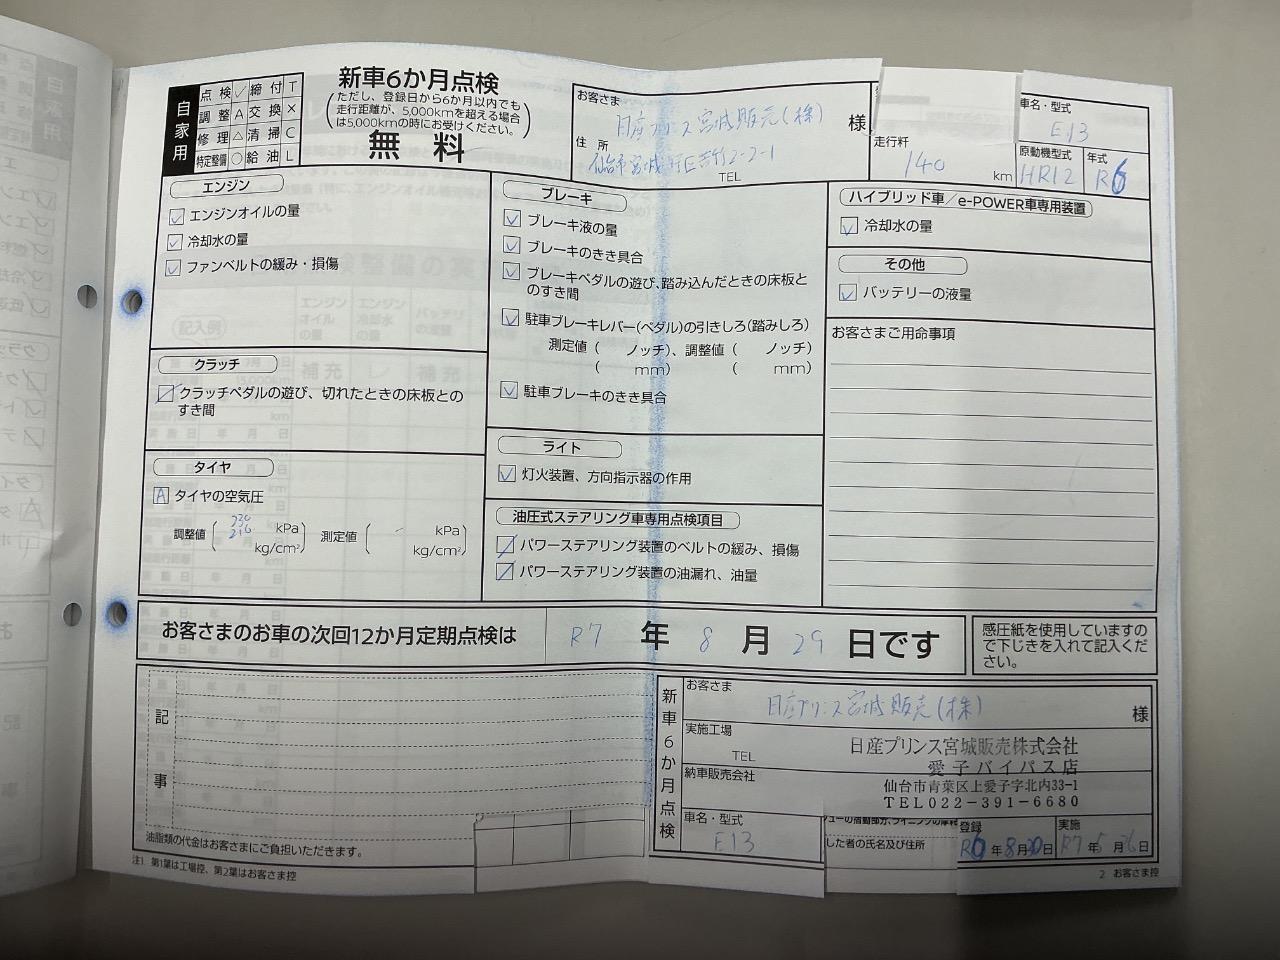 自家用
点検 ✓ 締付 T
調整 A 交換 ×
修理 △ 清掃 C
特定整備 ○ 給油 L
新車6か月点検
(ただし、登録日から6か月以内でも
走行距離が、5,000kmを超える場合
は5,000kmの時にお受けください。)
無料
お客さま
日産プリンス宮城販売(株) 様
住所
仙台市宮城野区
2-2-1
TEL
走行粁
140 km
車名・型式
E13
原動機型式
HR12
年式
R6
エンジン
エンジンオイルの量
冷却水の量
ファンベルトの緩み・損傷
クラッチ
クラッチペダルの遊び、切れたときの床板との
すき間
タイヤ
A タイヤの空気圧
調整値 ( 230 kPa 測定値 ( kPa
210 kg/cm²) kg/cm²)
ブレーキ
ブレーキ液の量
ブレーキのきき具合
ブレーキペダルの遊び、踏み込んだときの床板と
のすき間
駐車ブレーキレバー(ペダル)の引きしろ(踏みしろ)
測定値 ( ノッチ)、調整値 ( ノッチ)
( mm) ( mm)
駐車ブレーキのきき具合
ライト
灯火装置、方向指示器の作用
油圧式ステアリング車専用点検項目
パワーステアリング装置のベルトの緩み、損傷
パワーステアリング装置の油漏れ、油量
ハイブリッド車/e-POWER車専用装置
冷却水の量
その他
バッテリーの液量
お客さまご用命事項
お客さまのお車の次回12か月定期点検は R7 年 8 月 29 日です
感圧紙を使用していますの
で下じきを入れて記入くだ
さい。
記事
油脂類の代金はお客さまにご負担いただきます。
注1 第1葉は工場控、第2葉はお客さま控
新車6か月点検
お客さま
日産プリンス宮城販売(株) 様
実施工場
TEL
日産プリンス宮城販売株式会社
愛子バイパス店
納車販売会社
仙台市青葉区上愛子字北内33-1
TEL022-391-6680
車名・型式
E13
した者の氏名及び住所
登録
R6年8月30日
実施
R7年5月26日
2 お客さま控